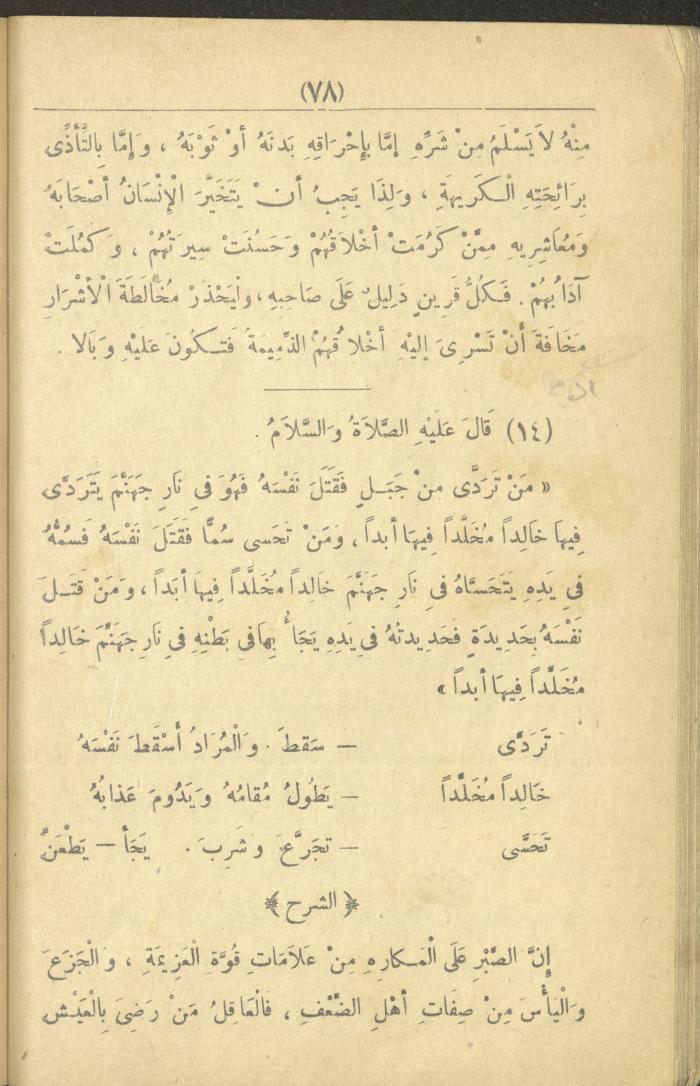 (٧٨)
مِنْهُ لاَ يَسْلَمُ مِنْ شَرِّهِ إِمَّا بِإِحْرَاقِهِ بَدَنَهُ أَوْ ثَوْبَهُ ، وَإِمَّا بِالتَّأَذِّى
بِرَائِحَتِهِ الْكَرِيهَةِ ، وَلِذَا يَجِبُ أَنْ يَتَخَيَّرَ الْإِنْسَانُ أَصْحَابَهُ
وَمُعَاشِرِيهِ مِمَّنْ كَرُمَتْ أَخْلاَقُهُمْ وَحَسُنَتْ سِيرَتُهُمْ ، وَكَمُلَتْ
آدَابُهُمْ . فَكُلُّ قَرِينٍ دَلِيلٌ عَلَى صَاحِبِهِ ، وَلْيَحْذَرْ مُخَالَطَةَ الْأَشْرَارِ
مَخَافَةَ أَنْ تَسْرِىَ إِلَيْهِ أَخْلاَقُهُمْ الذَّمِيمَةُ فَتَكُونَ عَلَيْهِ وَبَالاً .
(١٤) قَالَ عَلَيْهِ الصَّلاَةُ وَالسَّلاَمُ .
« مَنْ تَرَدَّى مِنْ جَبَلٍ فَقَتَلَ نَفْسَهُ فَهُوَ فِى نَارِ جَهَنَّمَ يَتَرَدَّى
فِيهَا خَالِداً مُخَلَّداً فِيهَا أَبداً ، وَمَنْ تَحَسى سُمًّا فَقَتَلَ نَفْسَهُ فَسُمُّهُ
فِى يَدِهِ يَتَحَسَّاهُ فِى نَارِ جَهَنَّمَ خَالِداً مُخَلَّداً فِيهَا أَبَداً ، وَمَنْ قَتَلَ
نَفْسَهُ بِحَدِيدَةٍ فَحَدِيدتُهُ فِى يَدِهِ يَجَأُ بِهَا فِى بَطْنِهِ فِى نَارِ جَهَنَّمَ خَالِداً
مُخَلَّداً فِيهَا أَبداً »
تَرَدَّى — سَقطَ . وَالْمُرَادُ أَسْقَطَ نَفْسَهُ
خَالِداً مُخَلَّداً — يَطُولُ مُقامُهُ وَيَدُومَ عَذابُهُ
تَحَسَّى — تجَرَّعَ وشَرِبَ . يَجَأُ — يَطْعَنُ
﴿ الشرح ﴾
إِنَّ الصَّبْرِ عَلَى الْمَكارِهِ مِنْ عَلاَمَاتِ قُوَّةِ الْعَزِيمَةِ ، وَالْجَزَعَ
وَالْيَأْسَ مِنْ صِفَاتِ أَهْلِ الضَّعْفِ ، فَالْعَاقِلُ مَنْ رَضِىَ بِالْعَيْشِ